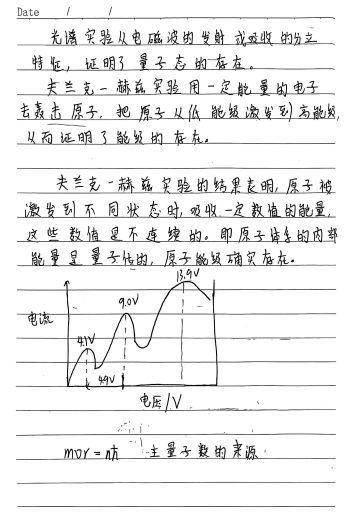 Date / /
光谱实验从电磁波的发射或吸收的分立
特征,证明了量子态的存在。
夫兰克-赫兹实验用一定能量的电子
去轰击原子,把原子从低能级激发到高能级,
从而证明了能级的存在。
夫兰克-赫兹实验的结果表明,原子被
激发到不同状态时,吸收一定数值的能量,
这些数值是不连续的。即原子体系的内部
能量是量子化的,原子能级确实存在。
13.9V
9.0V
电流
4.1V
4.9V
电压/V
mvr=nħ 主量子数的来源